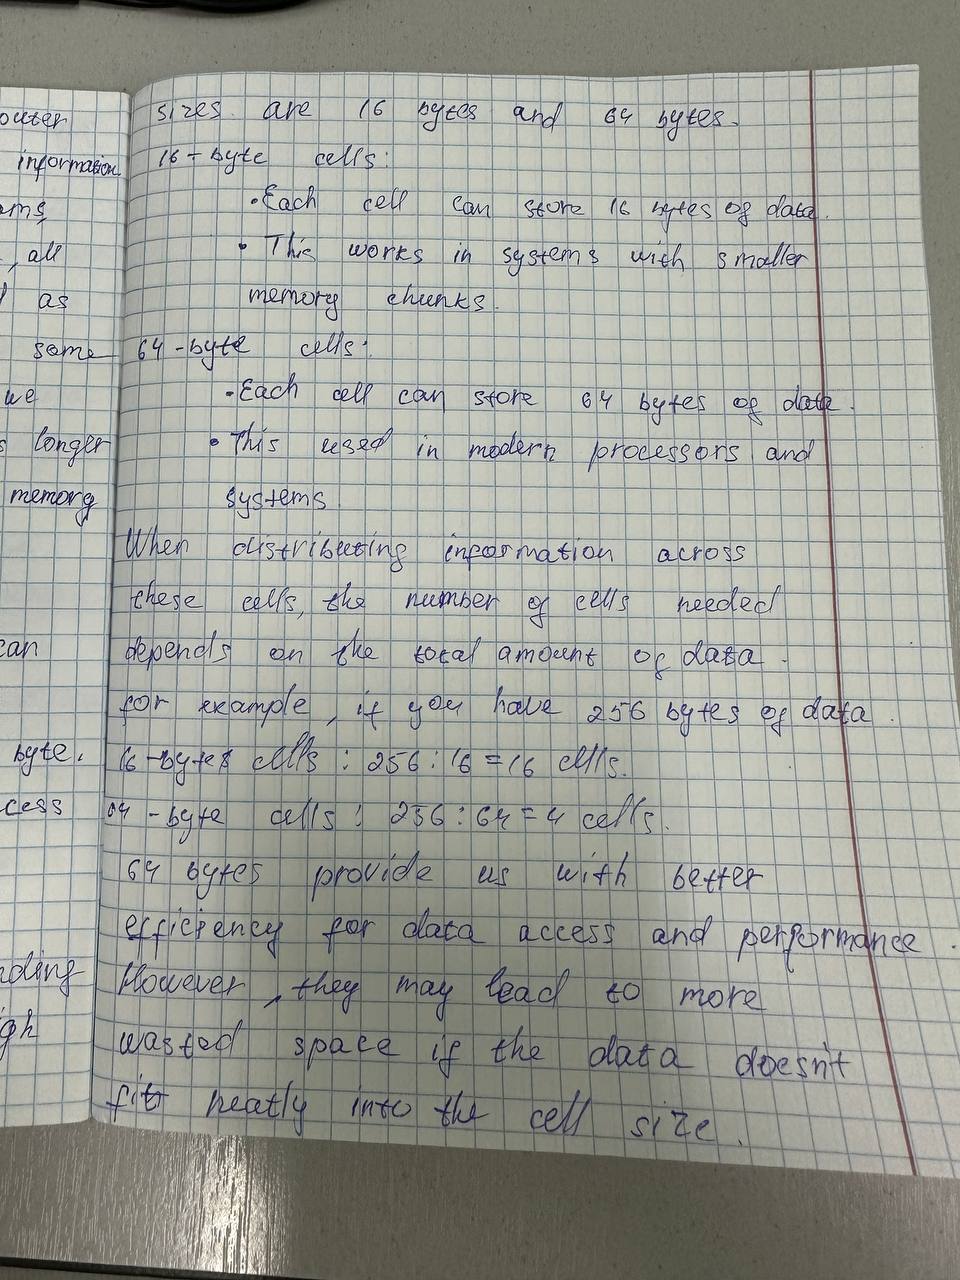 outer
information
ams,
, all
as
some
we
s longer
memory
can
byte.
cess
nding
igh
sizes are 16 bytes and 64 bytes.
16-byte cells:
• Each cell can store 16 bytes of data.
• This works in systems with smaller
memory chunks.
64-byte cells:
• Each cell can store 64 bytes of data.
• This used in modern processors and
systems.
When distributing information across
these cells, the number of cells needed
depends on the total amount of data.
for example, if you have 256 bytes of data.
16-bytes cells: 256:16=16 cells.
64-byte cells: 256:64=4 cells.
64 bytes provide us with better
efficiency for data access and performance.
However, they may lead to more
wasted space if the data doesn't
fit neatly into the cell size.